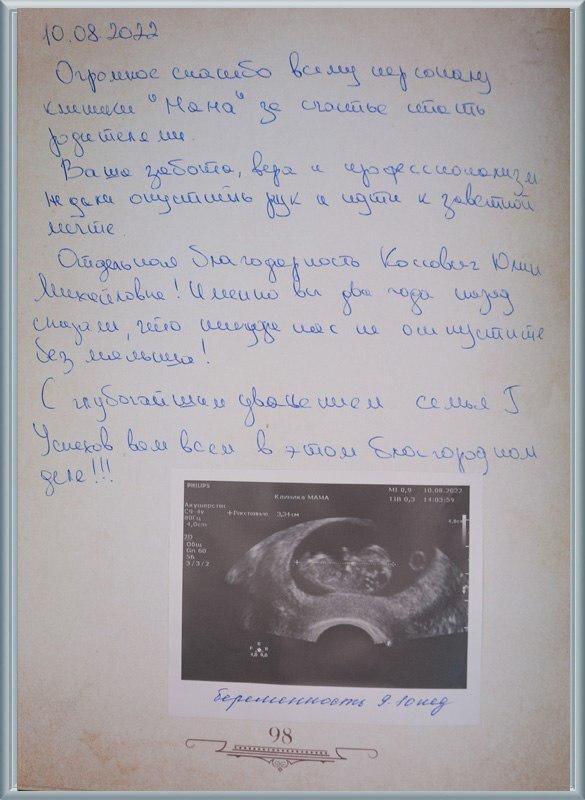 10.08.2022
Огромное спасибо всему персоналу
клиники "Мама" за счастье стать
родителями.
Ваша забота, вера и профессионализм
не дали опустить рук и идти к заветной
мечте.
Отдельная благодарность Косович Юлии
Михайловне! Именно вы два года назад
сказали, что никуда нас не отпустите
без малыша!
С глубочайшим уважением семья Г
Успехов вам всем в этом благородном
деле!!!
PHILIPS
Клиника МАМА
MI 0,9 10.08.2022
TIB 0,3 14:03:59
Акушерство
C9-4v
80Гц
4,0см
+Расстояние 3,34см
4,0см
2D
Общ
Gn 60
56
3/3/2
беременность 9-10нед
98